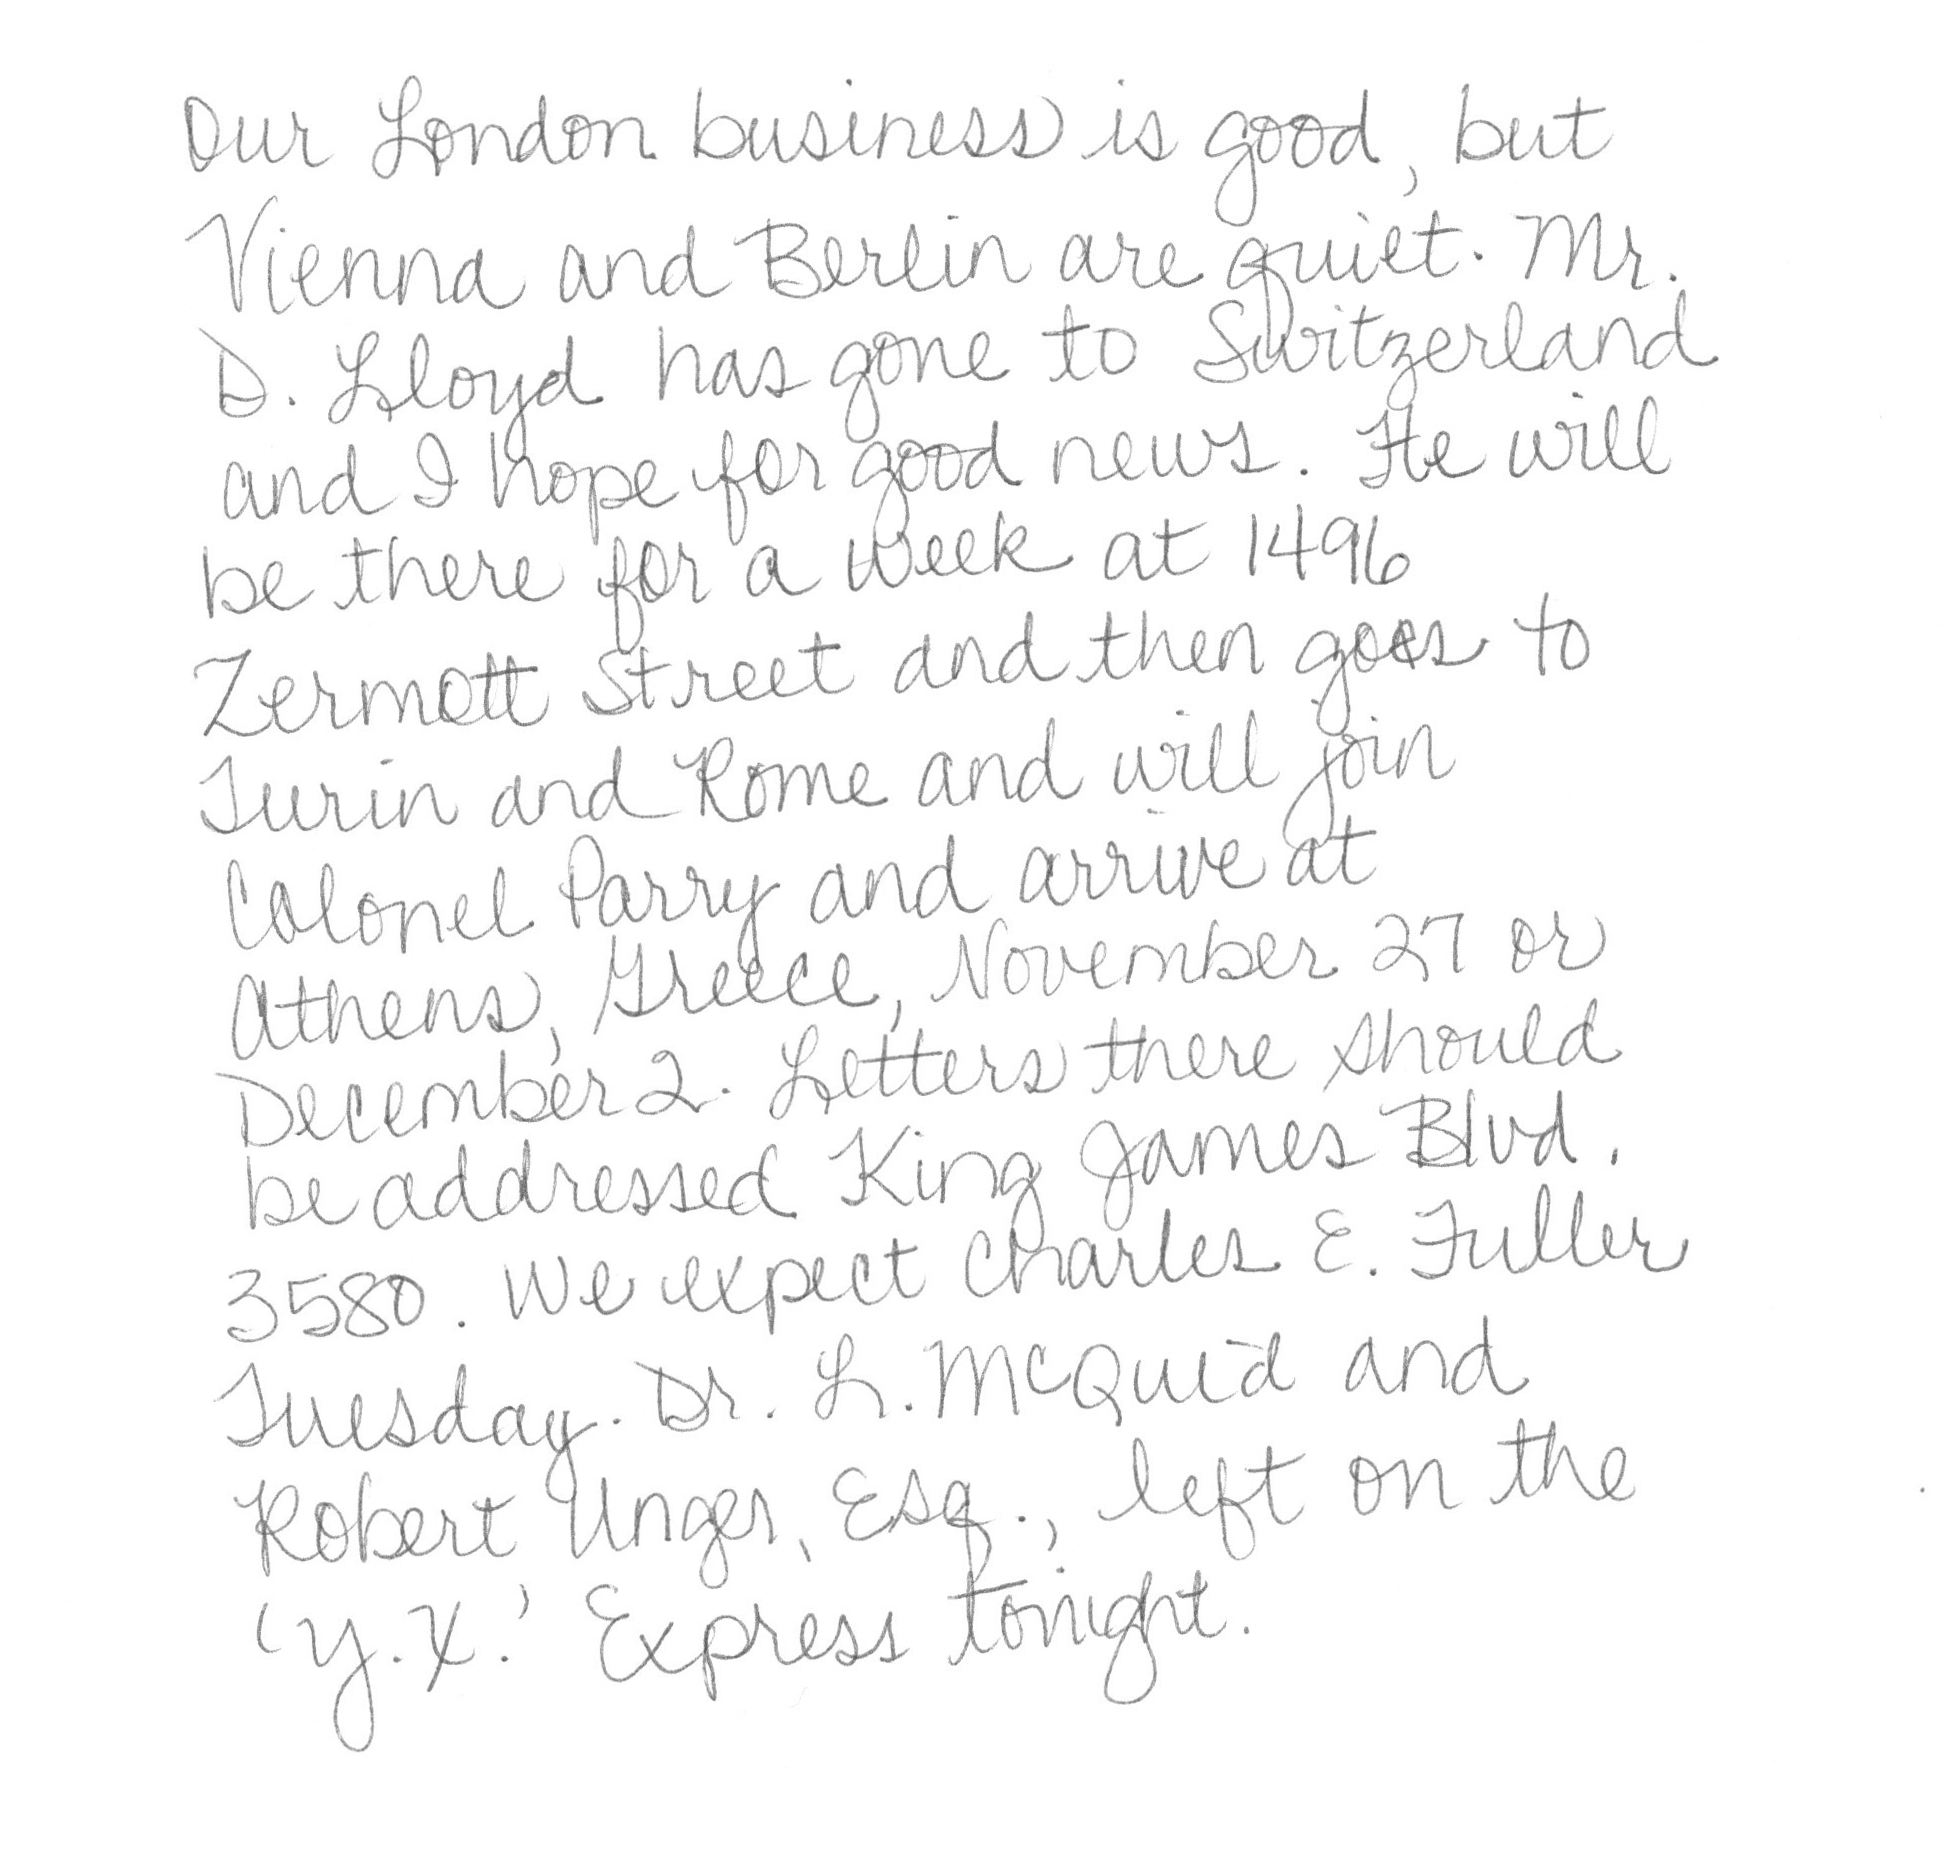 Our London business is good, but
Vienna and Berlin are quiet. Mr.
D. Lloyd has gone to Switzerland
and I hope for good news. He will
be there for a week at 1496
Zermott Street and then goes to
Turin and Rome and will join
Colonel Parry and arrive at
Athens, Greece, November 27 or
December 2. Letters there should
be addressed King James Blvd.
3580. We expect Charles E. Fuller
Tuesday. Dr. L. McQuid and
Robert Unger, Esq., left on the
'Y.X.' Express tonight.